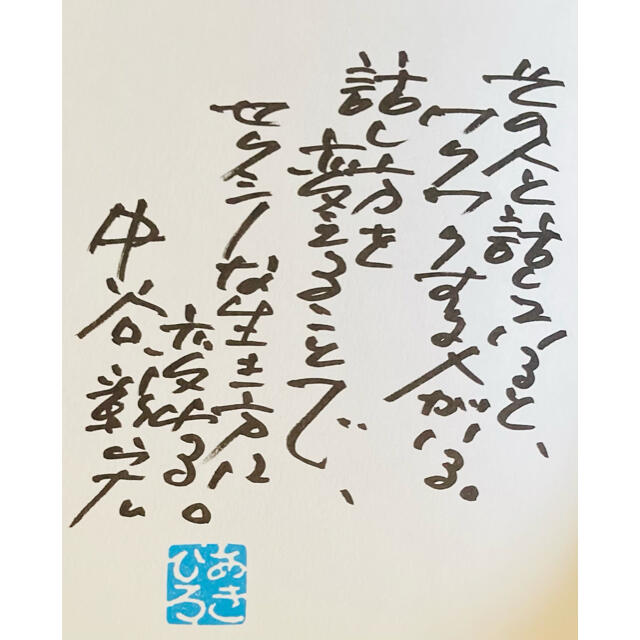 その人と話していると、
ワクワクする人がいる。
話し方を
変えることで、
セクシーな生き方に
変われる。
中谷彰宏
あき
ひろ